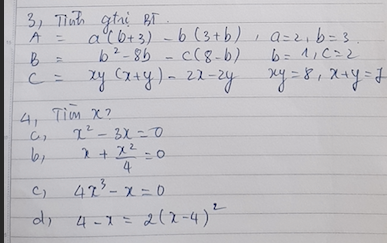 3, Tính gtrị BT.
A = a(b+3) - b(3+b), a=2, b=3
B = b² - 8b - c(8-b) b=1, c=2
C = xy(x+y) - 2x - 2y xy=8, x+y=7
4, Tìm x?
a, x² - 3x = 0
b, x + x²/4 = 0
c, 4x³ - x = 0
d, 4 - x = 2(x-4)²